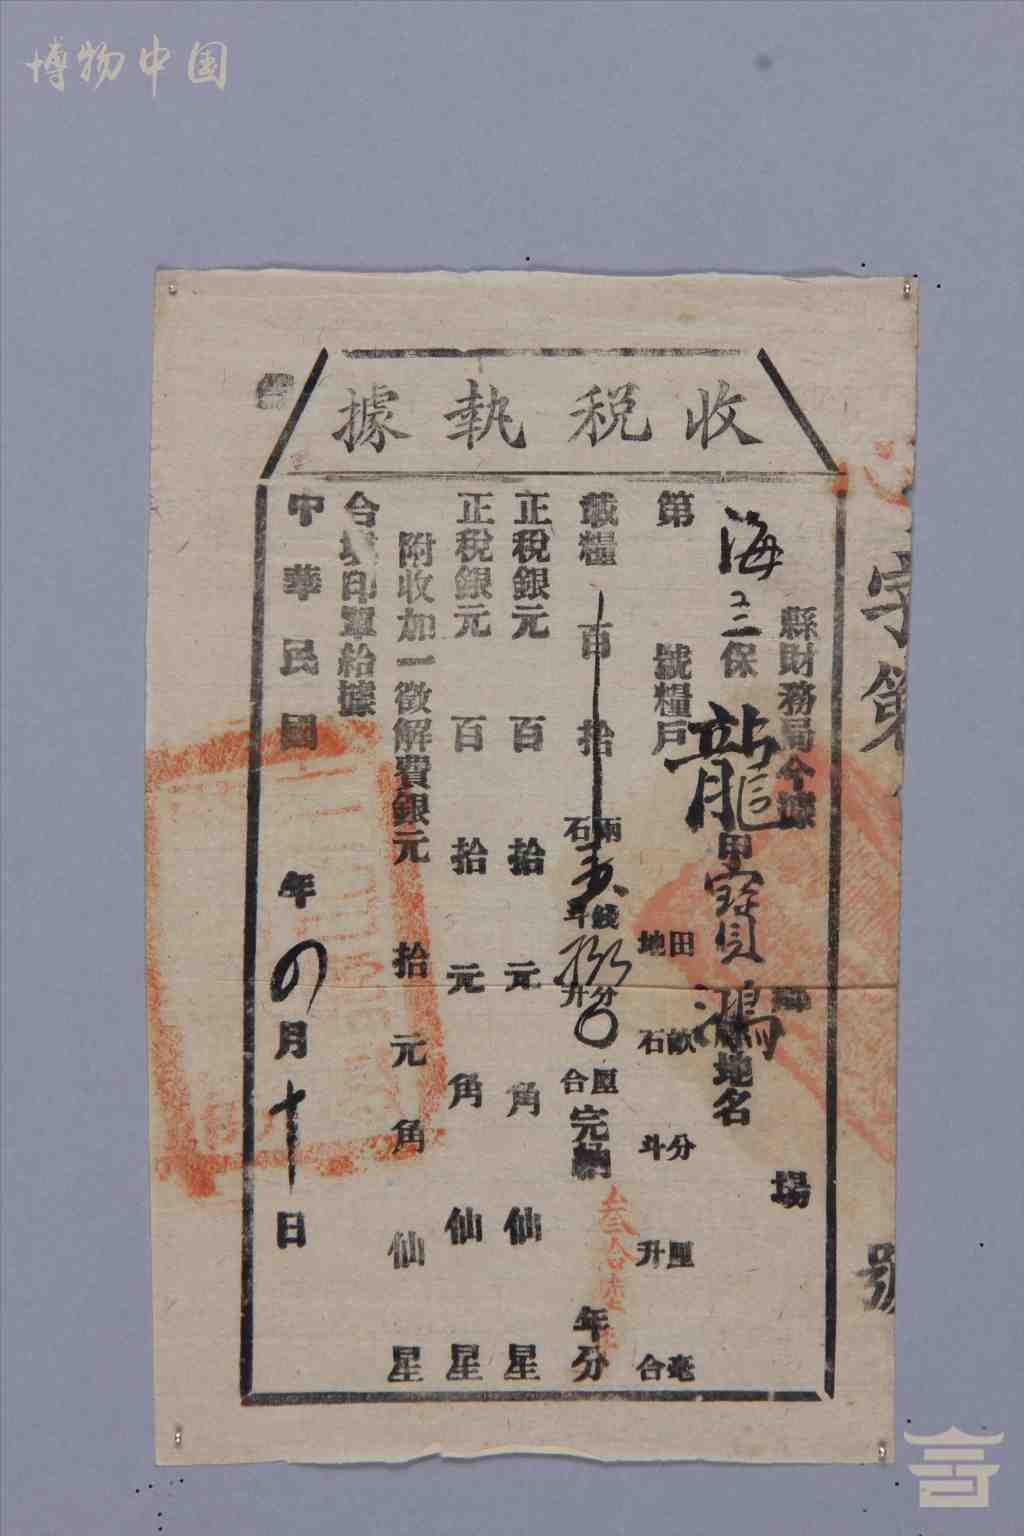 博物中国
收稅執據
字第
號
縣財務局今據
場
海三保龍甲寶鴻地名
第 號糧戶
田 畝 分 厘 毫
地 石 斗 升 合
載糧 百 拾 兩 錢 分 厘
石 斗 升 合
完納 年分
叁拾
正稅銀元 百 拾 元 角 仙 星
正稅銀元 百 拾 元 角 仙 星
附收加一徵解費銀元 拾 元 角 仙 星
合 印單給據
中華民國 年 月十日